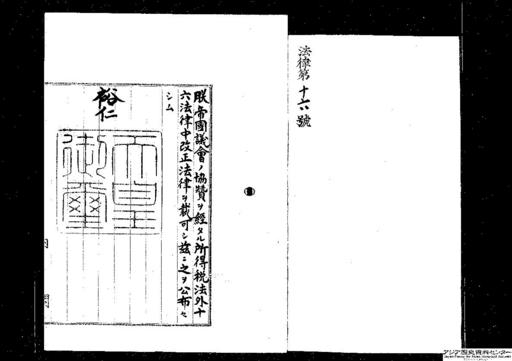 法律第十六號
朕帝國議會ノ協贊ヲ經タル所得税法外十
六法律中改正法律ヲ裁可シ茲ニ之ヲ公布セ
シム
裕仁
天皇
御璽
アジア歴史資料センター